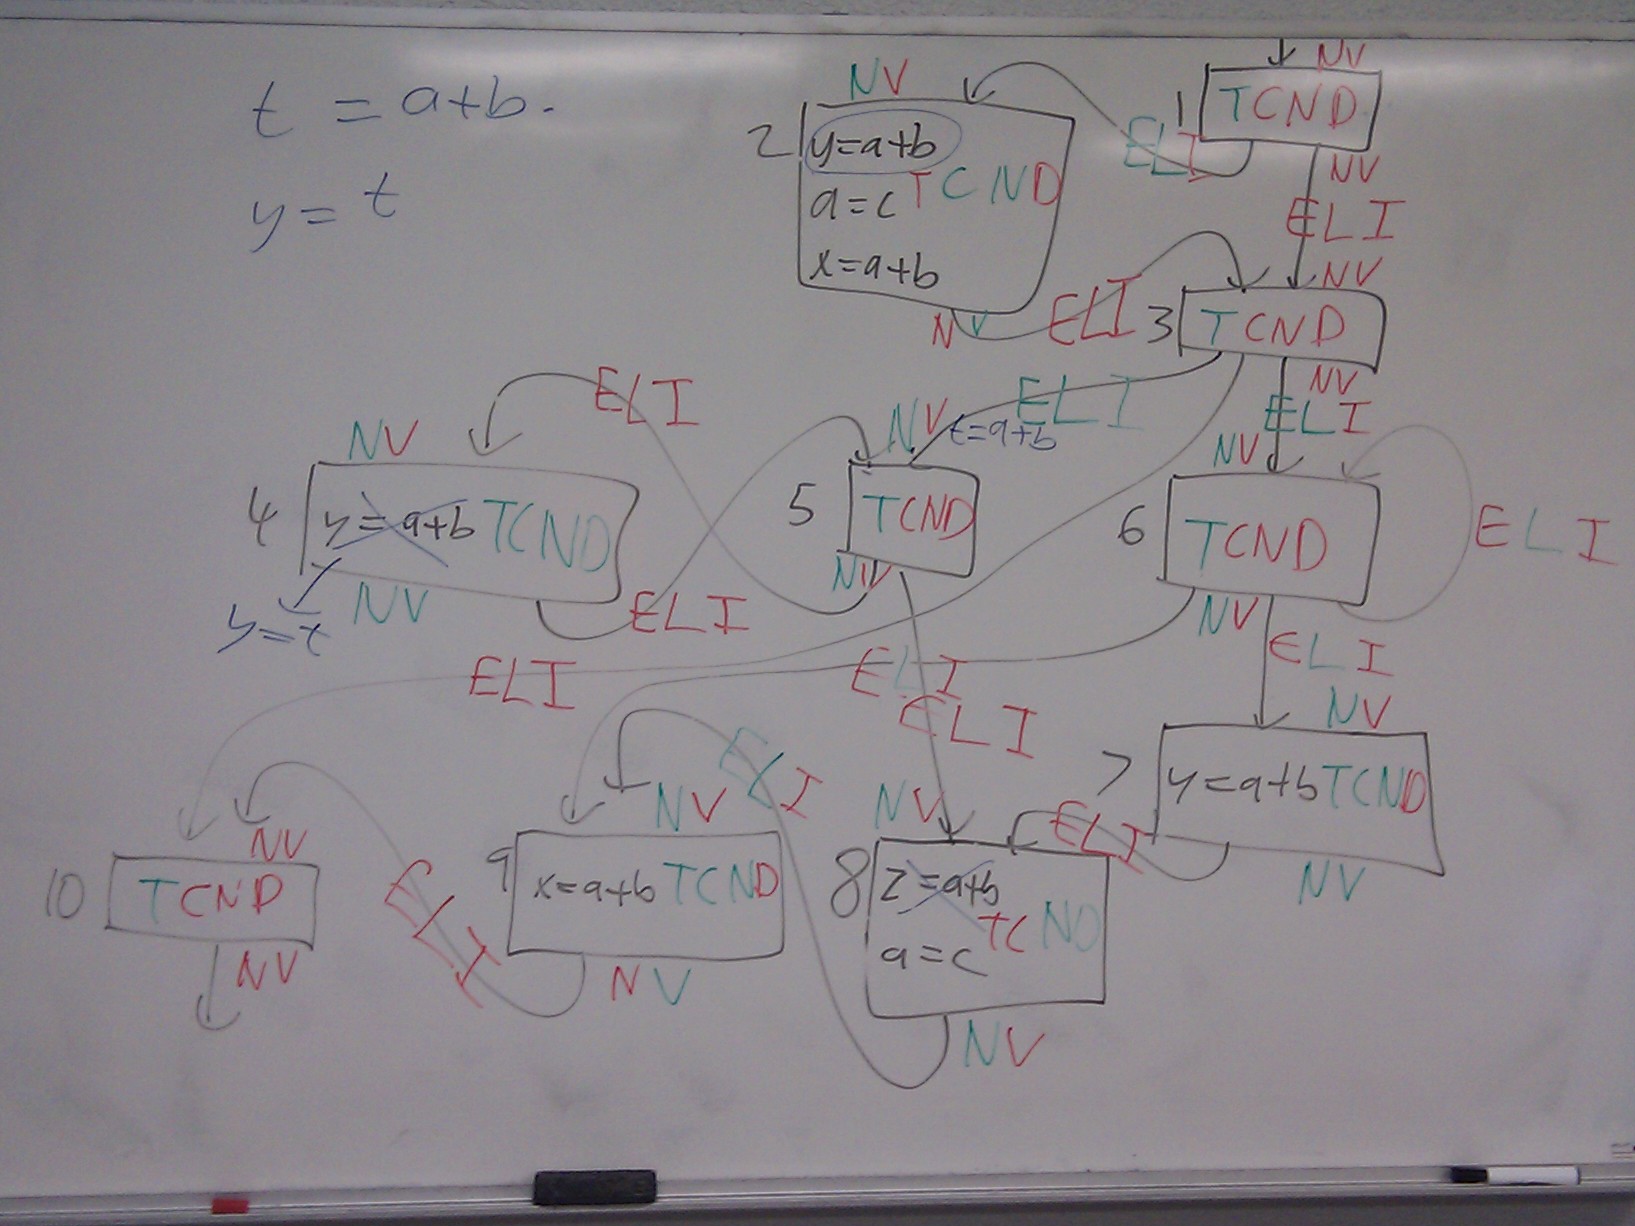 t = a+b.
y = t
NV
1 TCND
ELI
NV
ELI
NV
2 y=a+b
a=c TCND
x=a+b
NV
ELI
NV
3 TCND
NV
ELI
ELI
NV
t=a+b
ELI
NV
4 y=a+b TCND
y=t
NV
ELI
5 TCND
NV
NV
6 TCND
ELI
NV
ELI
ELI
ELI
ELI
NV
7 y=a+b TCND
NV
ELI
NV
8 z=a+b
TCND
a=c
NV
ELI
NV
9 x=a+b TCND
NV
ELI
NV
10 TCND
NV